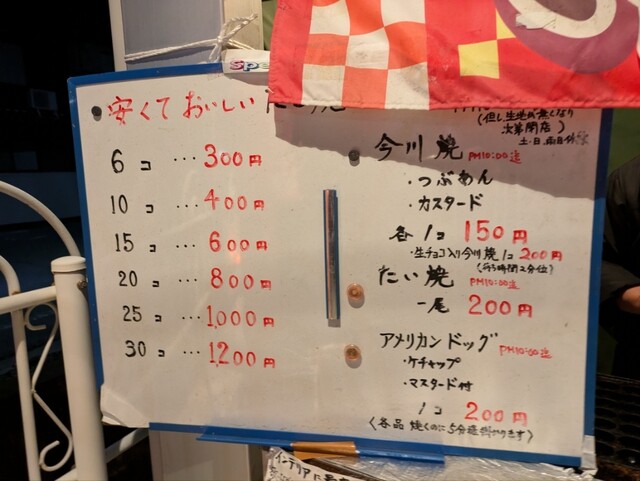 安くて おいしい たこ焼
6コ … 300円
10コ … 400円
15コ … 600円
20コ … 800円
25コ … 1,000円
30コ … 1,200円
(但し生地が無くなり
次第閉店)
土・日、雨日休
今川焼 PM10:00迄
・つぶあん
・カスタード
各1コ 150円
・生チョコ入り今川焼1コ200円
たい焼 PM10:00迄
一尾 200円
アメリカンドッグ PM10:00迄
・ケチャップ
・マスタード付
1コ 200円
インテリア